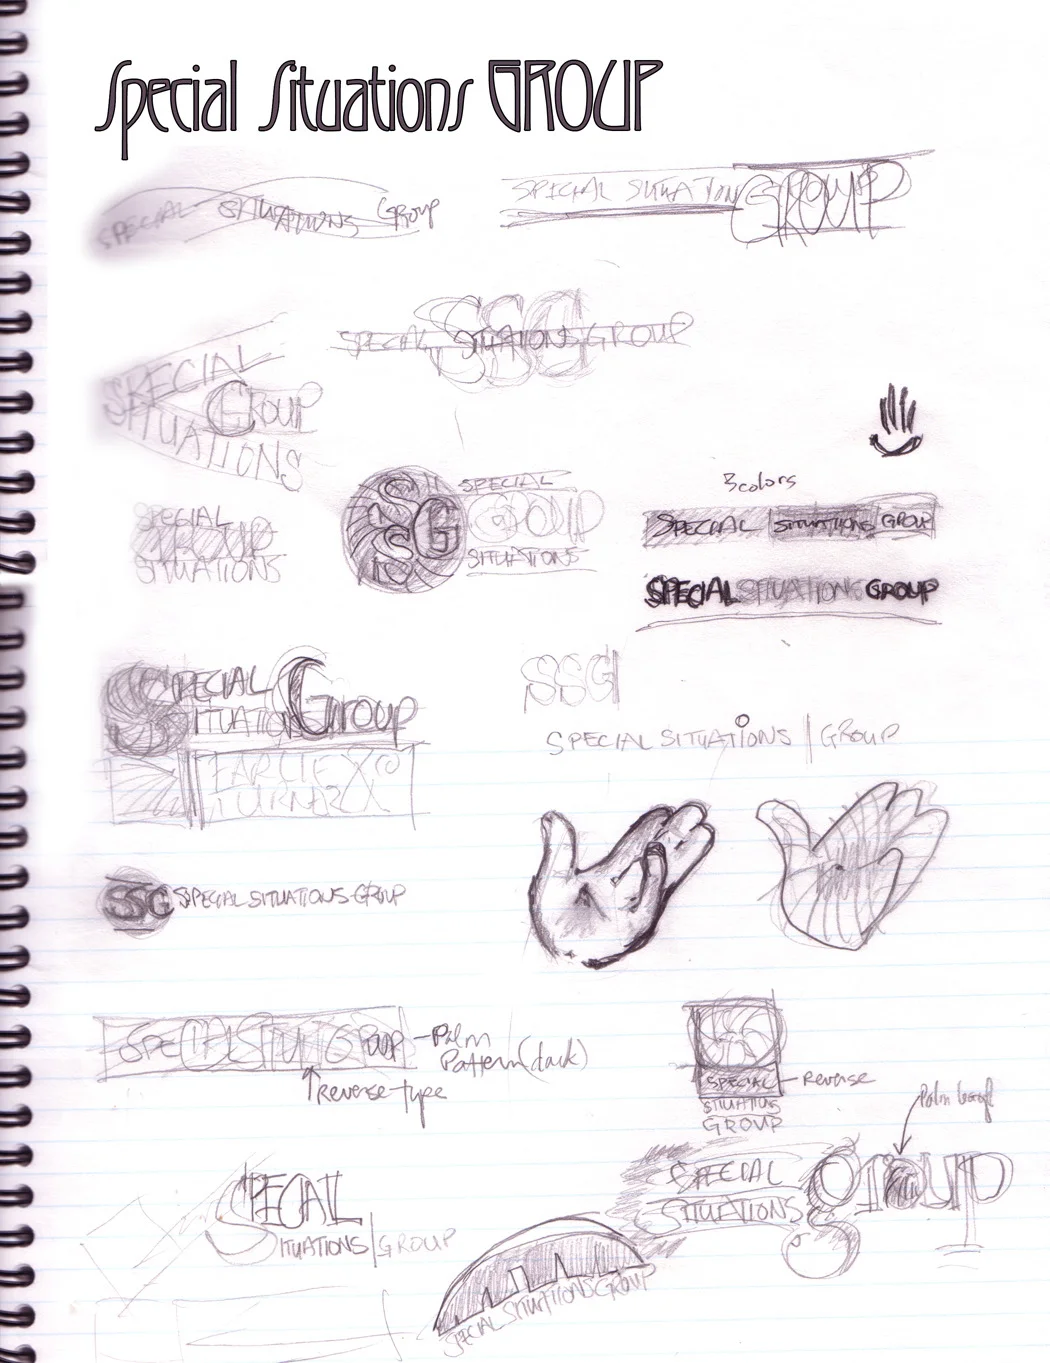 Special Situations GROUP
SPECIAL SITUATIONS GROUP
SPECIAL SITUATION GROUP
SSG
SPECIAL SITUATIONS GROUP
SPECIAL
GROUP
SITUATIONS
3 colors
SPECIAL
GROUP
SITUATIONS
SSG
SG
SPECIAL
GROUP
SITUATIONS
SPECIAL SITUATIONS GROUP
SPECIAL SITUATIONS GROUP
SPECIAL
SITUATIONS
Group
SSG
SPECIAL SITUATIONS | GROUP
SSG SPECIAL SITUATIONS GROUP
Palm
Pattern (dark)
Reverse-type
SPECIAL
Reverse
SITUATIONS
GROUP
Palm leaf
SPECIAL
SITUATIONS
group
SPECIAL
SITUATIONS | GROUP
SPECIAL SITUATIONS GROUP